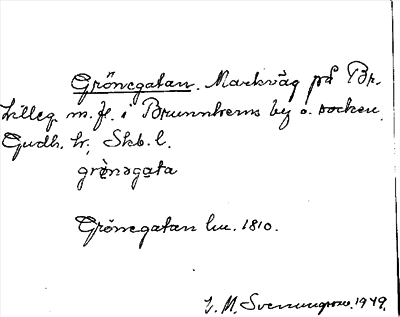 Grönegatan. Markväg på Br.
Lilleg m.fl. i Brunnhems by o. socken.
Gudh. hr; Skb. l.
grö̀nəgata
Grönegatan lm. 1810.
1949.